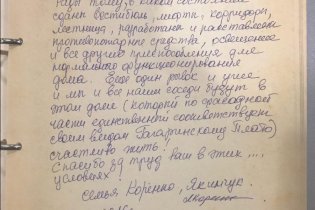 рады тому, в каком состоянии
сдают вестибюль, лифты, коридоры,
лестница, разработан и расставлены
противопожарные средства, освещение
и все другие приспособления для
нормального функционирования
дома. Еще один рывок и усилие
и мы и все наши соседи будут в
этом доме (который по фасадной
части единственный соответствует
своим видом Гагаринскому Плато)
счастливо жить!
Спасибо за труд ваш в этих ....
условиях!
Семья Коренко, Якимчук